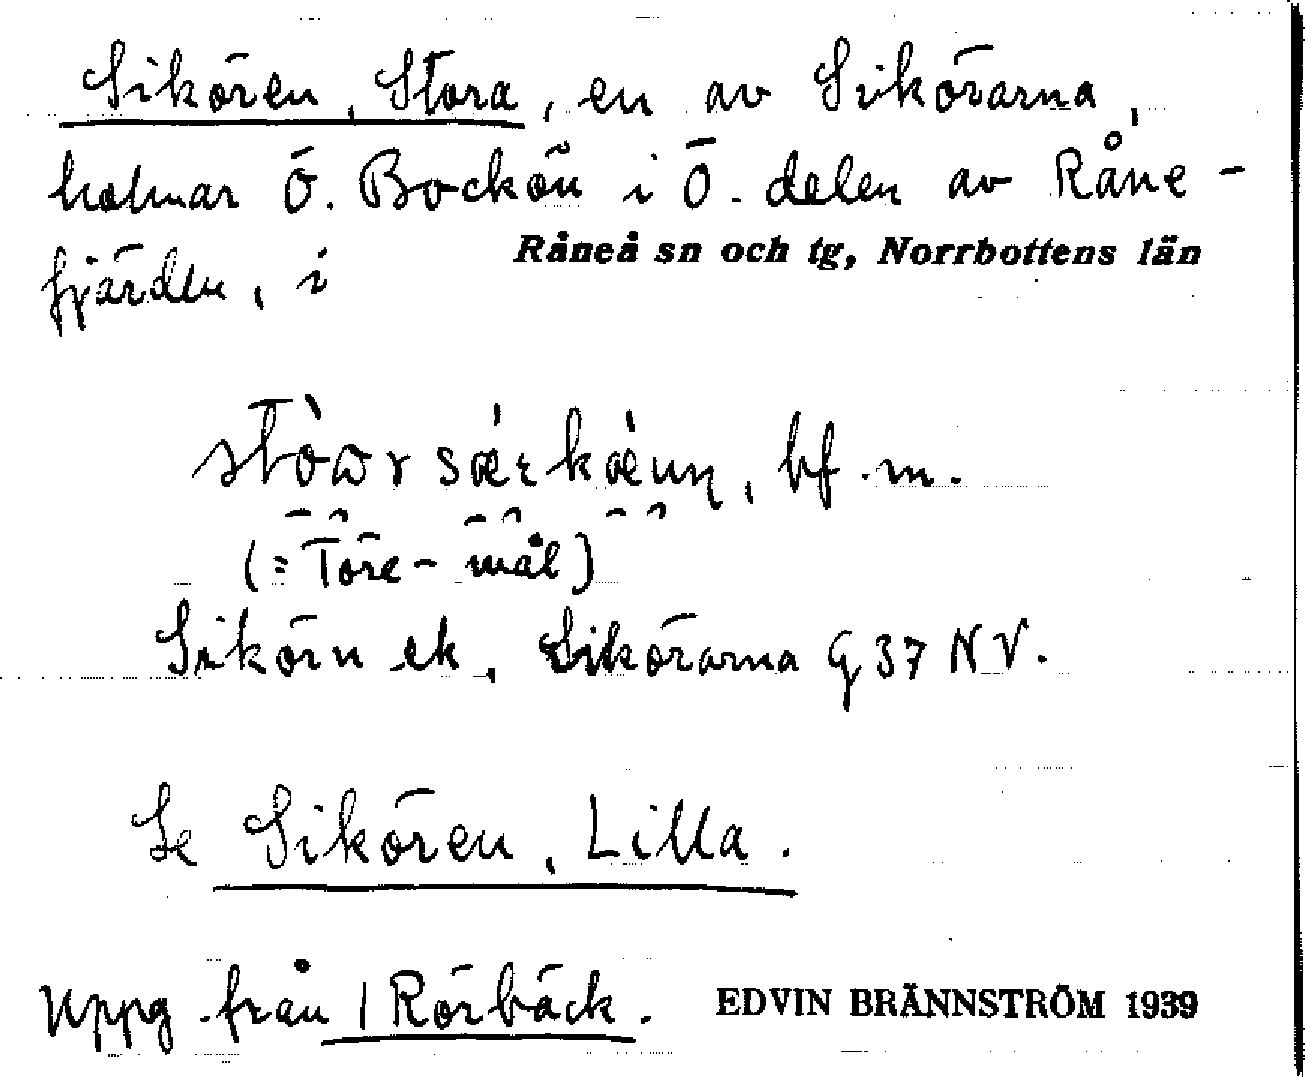 Sikören, Stora, en av Sikörarna,
holmar Ö. Bockön i Ö. delen av Råne-
fjärden, i Råneå sn och tg, Norrbottens län
bf. m.
(= Töre-mål)
Sikörn ek. Sikörarna G 37 NV.
Se Sikören, Lilla.
Uppg. från | Rörbäck. EDVIN BRÄNNSTRÖM 1939